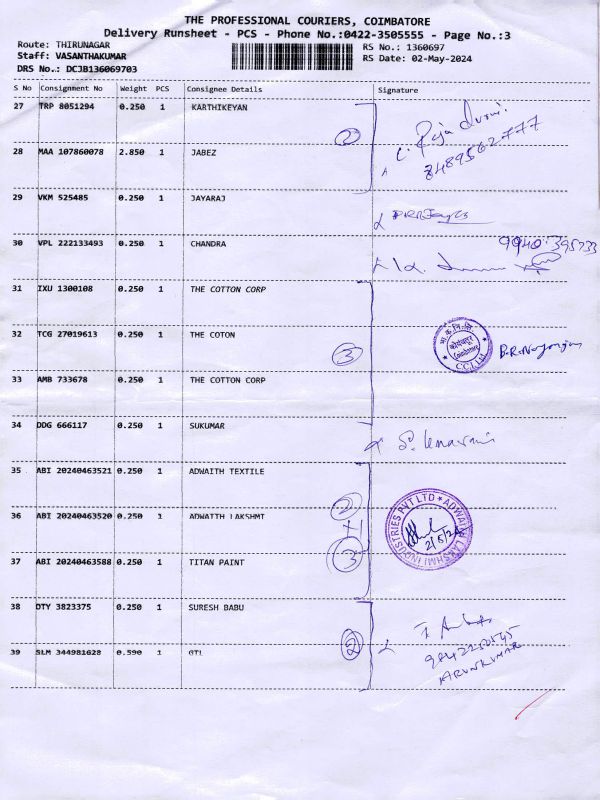 THE PROFESSIONAL COURIERS, COIMBATORE
Delivery Runsheet - PCS - Phone No.:0422-3505555 - Page No.:3
Route: THIRUNAGAR
Staff: VASANTHAKUMAR
DRS No.: DCJB136069703
RS No.: 1360697
RS Date: 02-May-2024
S No Consignment No Weight PCS Consignee Details Signature
27 TRP 8051294 0.250 1 KARTHIKEYAN
2
8489562777
28 MAA 107860078 2.850 1 JABEZ
29 VKM 525485 0.250 1 JAYARAJ
30 VPL 222133493 0.250 1 CHANDRA
99401395733
31 IXU 1300108 0.250 1 THE COTTON CORP
32 TCG 27019613 0.250 1 THE COTON
3
Coimbatore
C.C.I.LTD
33 AMB 733678 0.250 1 THE COTTON CORP
34 DDG 666117 0.250 1 SUKUMAR
35 ABI 20240463521 0.250 1 ADWAITH TEXTILE
2
36 ABI 20240463520 0.250 1 ADWAITH LAKSHMI
+
ADWAITH LAKSHMI INDUSTRIES PVT LTD
2/5/24
37 ABI 20240463588 0.250 1 TITAN PAINT
3
38 DTY 3823375 0.250 1 SURESH BABU
2
9842250545
ARUNKUMAR
39 SLM 344981628 0.590 1 GTL